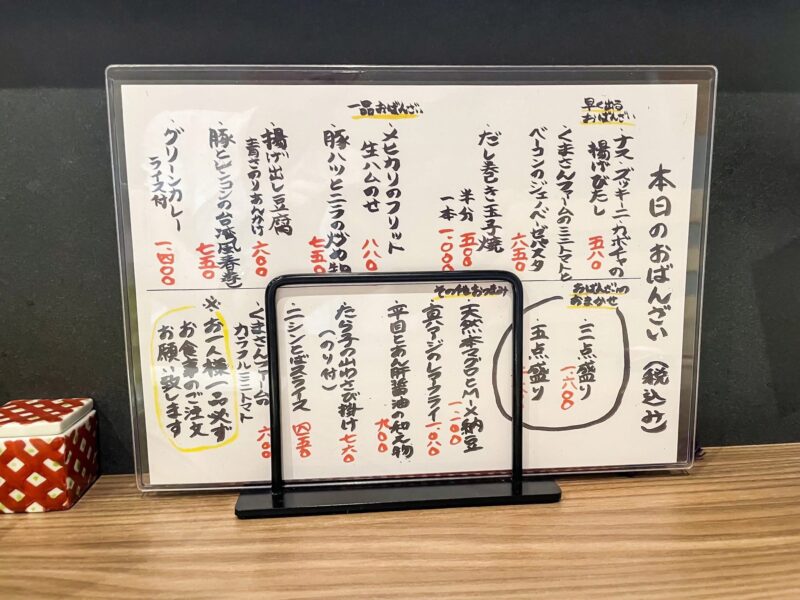 本日のおばんざい(税込み)
早く出るおばんざい
・ナス・ズッキーニ・カボチャの
揚げびたし
五八〇
・くまさんファームのミニトマトと
ベーコンのジェノベーゼパスタ
六五〇
一品おばんざい
・だし巻き玉子焼
半分 五〇〇
一本 一、〇〇〇
・メヒカリのフリット
生ハムのせ
八八〇
・豚ハツとニラの炒め物
七五〇
・揚げ出し豆腐
青さのりあんかけ
六〇〇
・豚とピーマンの台湾風春巻
七五〇
・グリーンカレー
ライス付
一、四〇〇
おばんざいの
おまかせ
・三点盛り
一、六〇〇
・五点盛り
その他おつまみ
・天然本マグロとMIX納豆
一、二〇〇
・真ハージのレアフライ
一、〇八〇
・平目とあん肝醤油の和え物
九〇〇
・たら子の山わさび掛け
(のり付)
七六〇
・ニシンとばスライス
四五〇
・くまさんファームの
カラフルミニトマト
六〇〇
※お一人様一品必ず
お食事のご注文
お願い致します